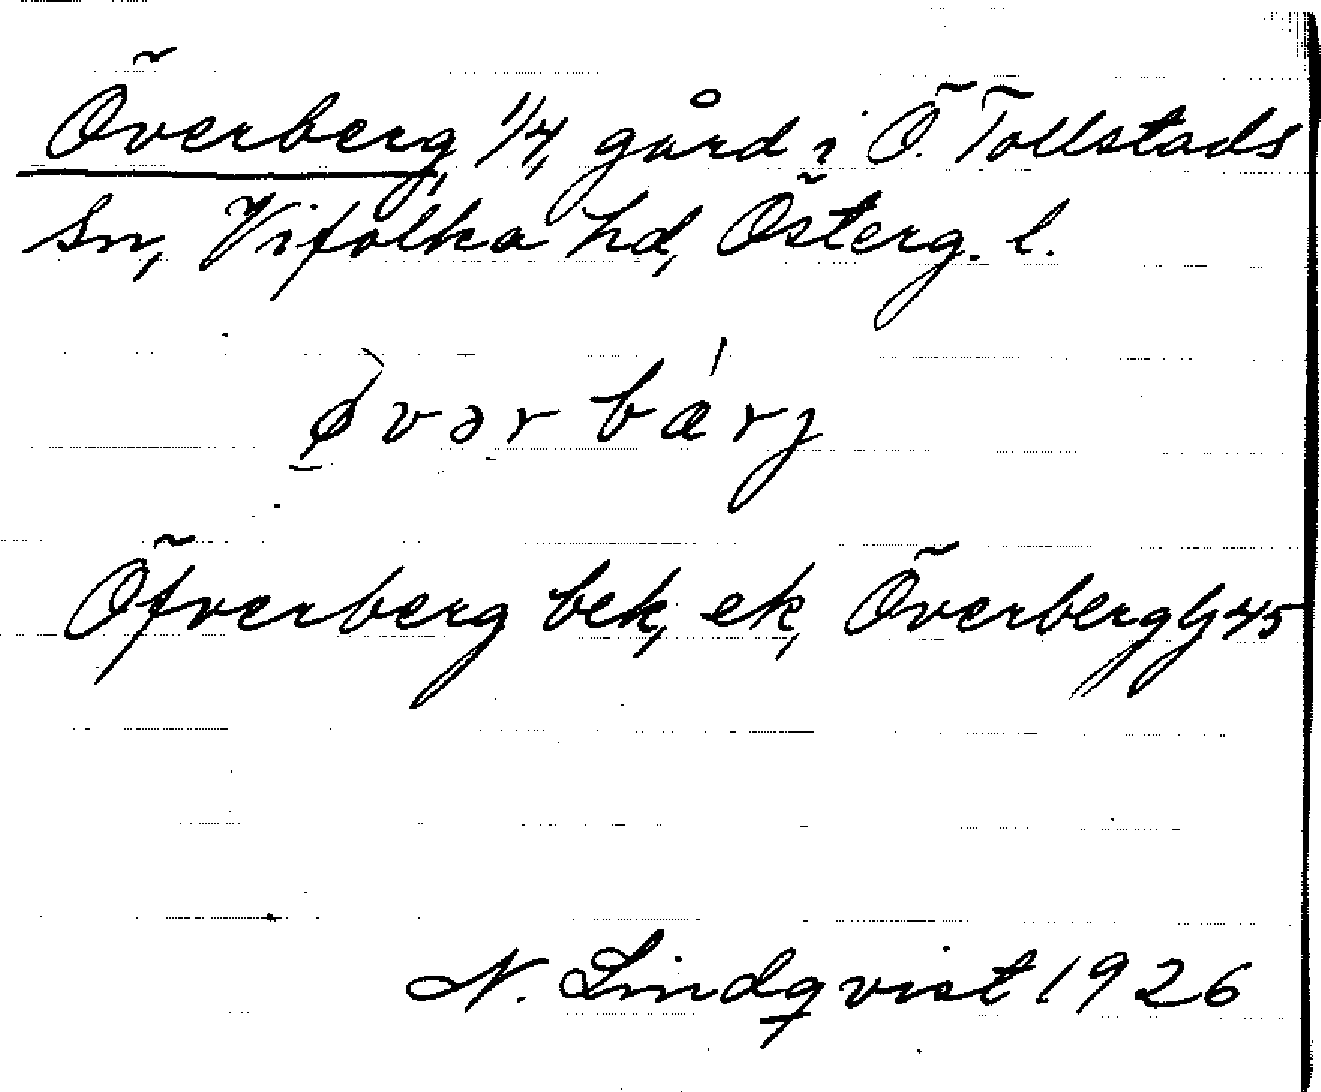 Överberg, 1/4, gård i Ö. Tollstads
sn, Vifolka hd, Österg. l.
ø̀vərbǽrj
Öfverberg bek, ek, Överberg Gj 45
N. Lindqvist 1926